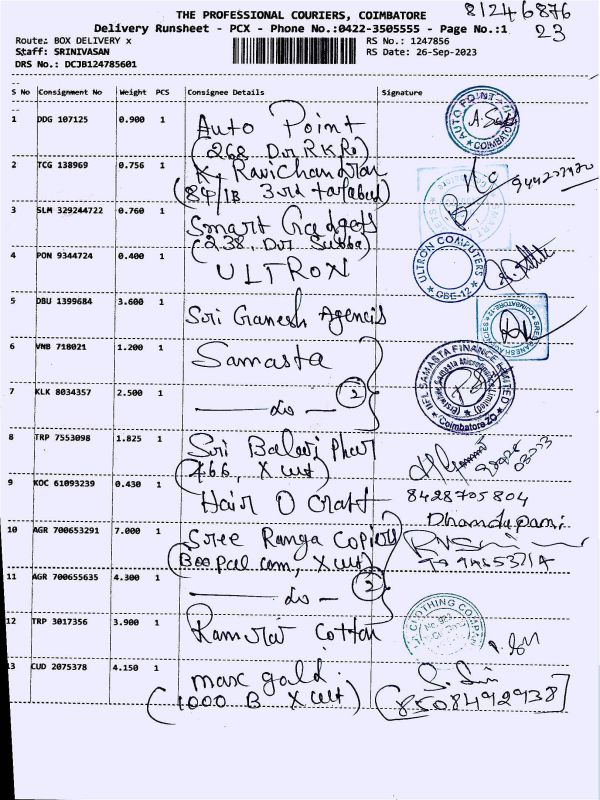 THE PROFESSIONAL COURIERS, COIMBATORE
81246876
23
Delivery Runsheet - PCX - Phone No.:0422-3505555 - Page No.:1
Route: BOX DELIVERY x
RS No.: 1247856
Staff: SRINIVASAN
RS Date: 26-Sep-2023
DRS No.: DCJB124785601
S No Consignment No Weight PCS Consignee Details Signature
1 DDG 107125 0.900 1 Auto Point
AUTO POINT COIMBATORE
(268
2 TCG 138969 0.756 1 K. Ravichandran
(84/1B 3rd
3 SLM 329244722 0.760 1 Smart Gadgets
(238, Dor Subba)
4 PON 9344724 0.400 1 ULTRON
ULTRON COMPUTERS CBE-12
5 DBU 1399684 3.600 1 Sri Ganesh Agencis
SREE GANESH AGENCIES COIMBATORE-12
6 VNB 718021 1.200 1 Samasta
IIFL SAMASTA FINANCE LIMITED
Coimbatore ZO
7 KLK 8034357 2.500 1 — do — 2
8 TRP 7553098 1.825 1 Sri Balaji
(466, X cut)
9 KOC 61093239 0.430 1 Hair O Craft
8428705804
Dhandapani
10 AGR 700653291 7.000 1 Sree Ranga Copiers
(Boopal com, X cut)
11 AGR 700655635 4.300 1 — do — 2
12 TRP 3017356 3.900 1 Ramraj Cotton
CLOTHING COMPANY
13 CUD 2075378 4.150 1 max gold.
(1000 B X cut)
(8508492938)